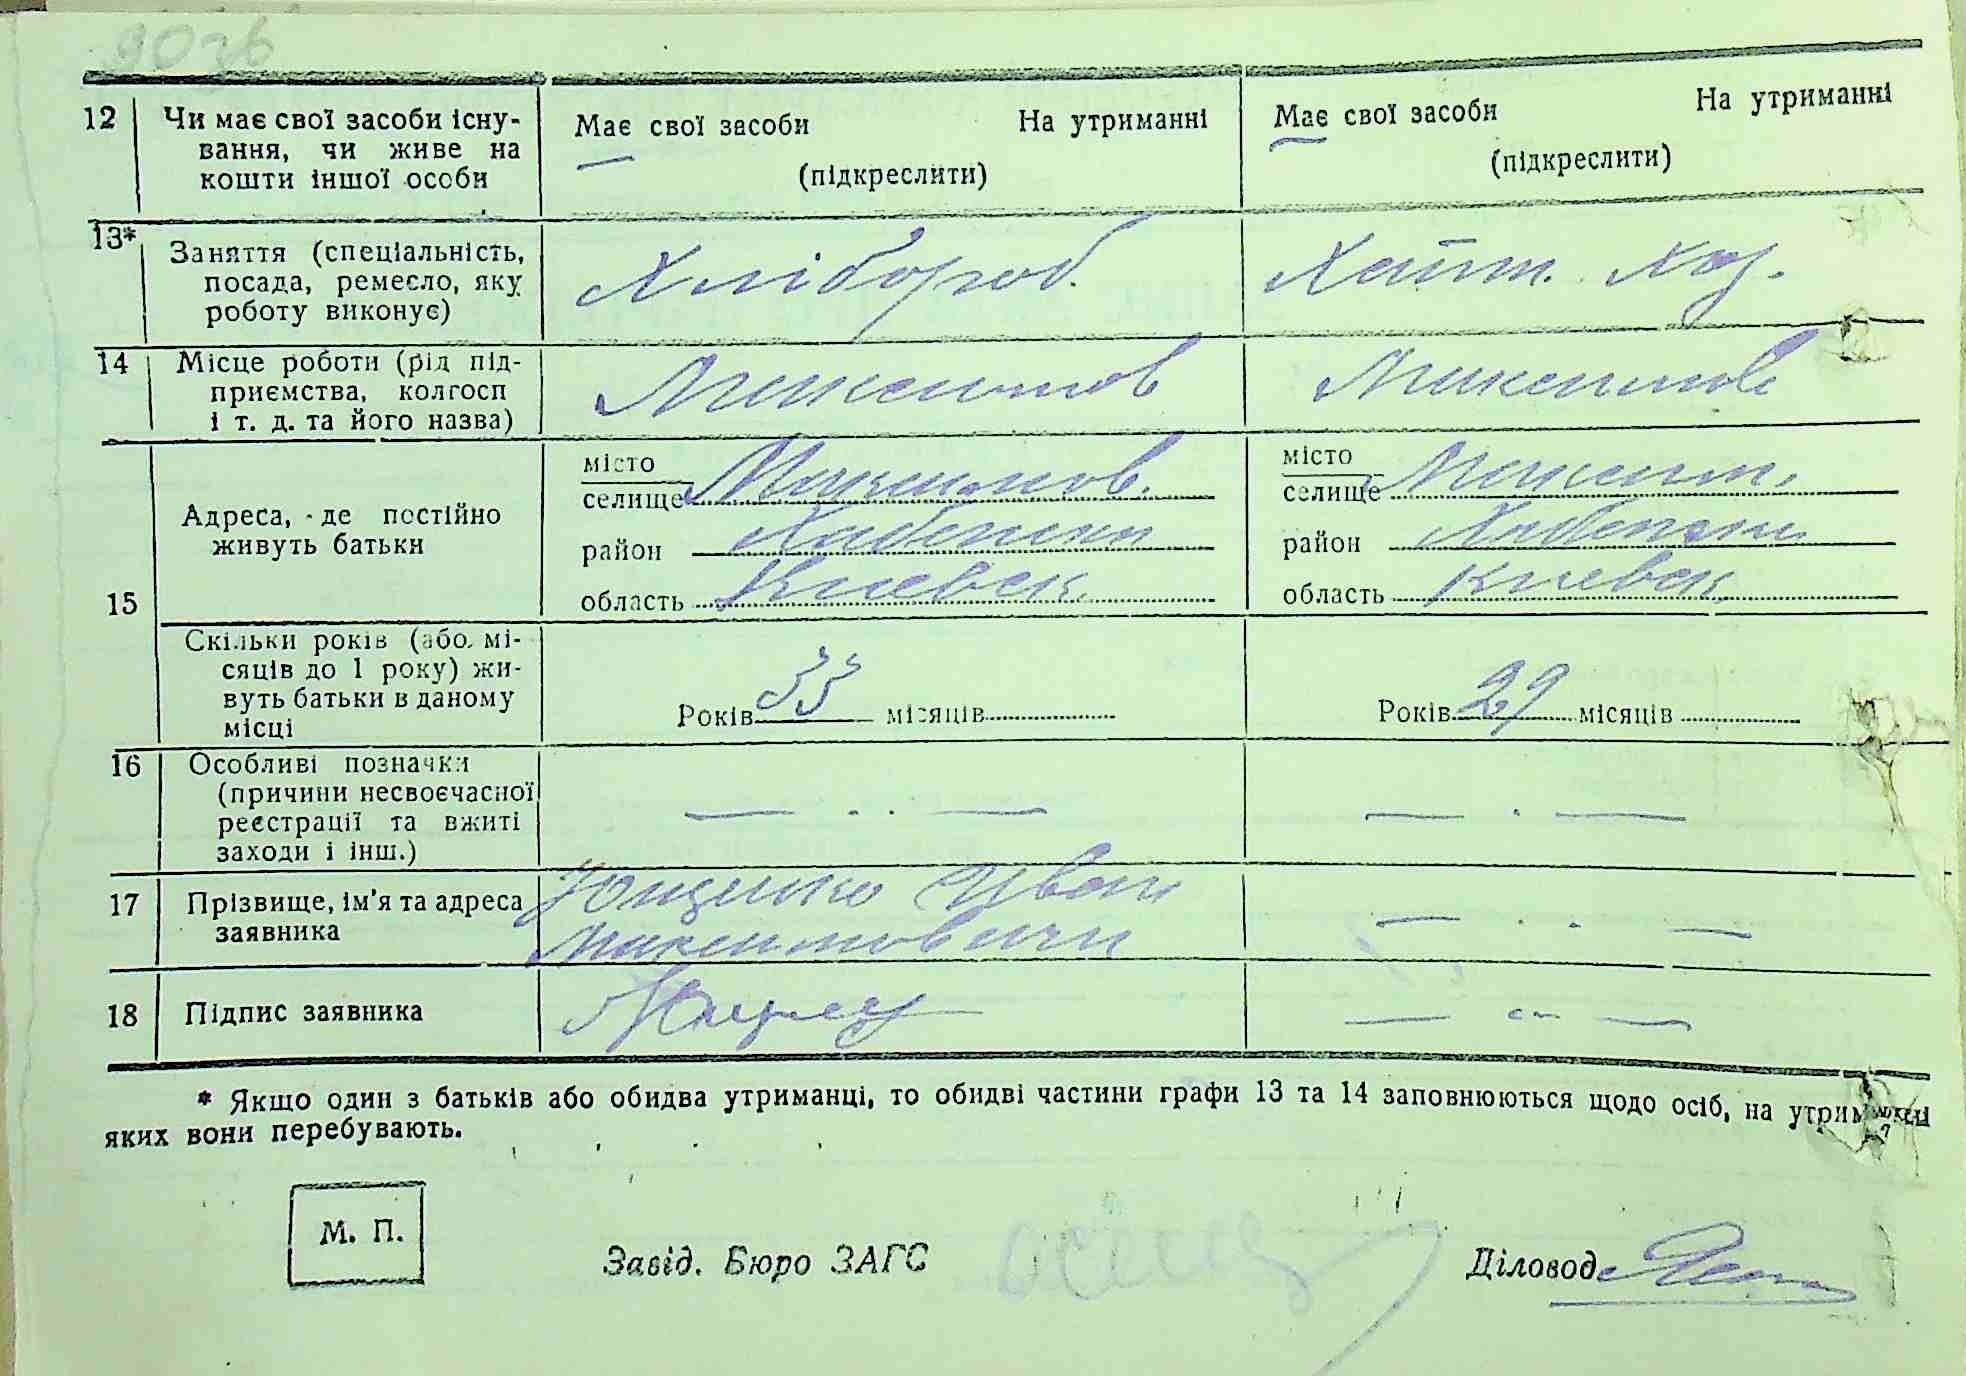 12 Чи має свої засоби існу-
вання, чи живе на
кошти іншої особи
Має свої засоби На утриманні
(підкреслити)
Має свої засоби На утриманні
(підкреслити)
13* Заняття (спеціальність,
посада, ремесло, яку
роботу виконує)
Хлібороб.
Хатт. Хоз.
14 Місце роботи (рід під-
приємства, колгосп
і т. д. та його назва)
Максимов
Максимов
15
Адреса, де постійно
живуть батьки
місто
селище Максимов.
район
область Киевск.
місто
селище Максим.
район
область Киевск.
Скільки років (або мі-
сяців до 1 року) жи-
вуть батьки в даному
місці
Років 33 місяців
Років 29 місяців
16 Особливі позначки
(причини несвоєчасної
реєстрації та вжиті
заходи і інш.)
— . . —
— . —
17 Прізвище, ім'я та адреса
заявника
Ющенко Иван
Максимович
— . . —
18 Підпис заявника
* Якщо один з батьків або обидва утриманці, то обидві частини графи 13 та 14 заповнюються щодо осіб, на утриманні
яких вони перебувають.
М. П.
Завід. Бюро ЗАГС
Діловод